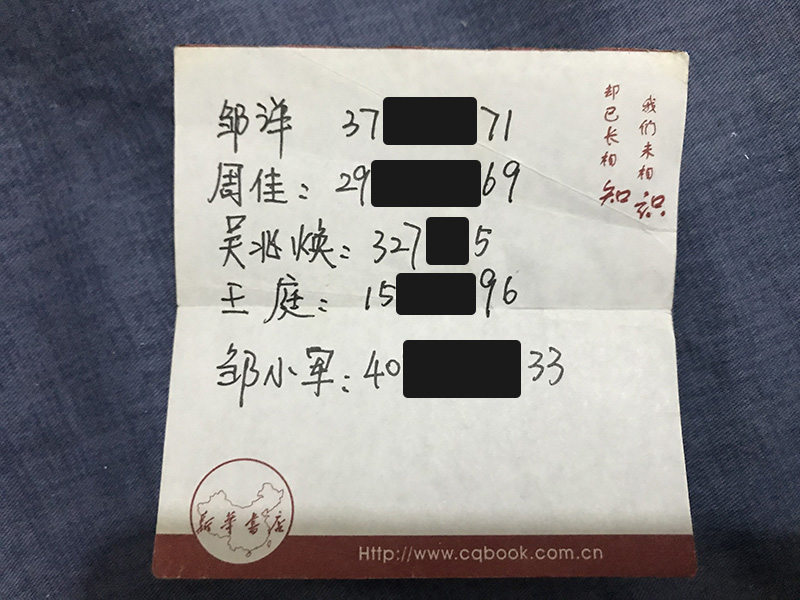 邹洋 37 71
周佳：29 69
吴兆焕：327 5
王庭：15 96
邹小军：40 33
我们未相识
却已长相知
新华书店
Http://www.cqbook.com.cn